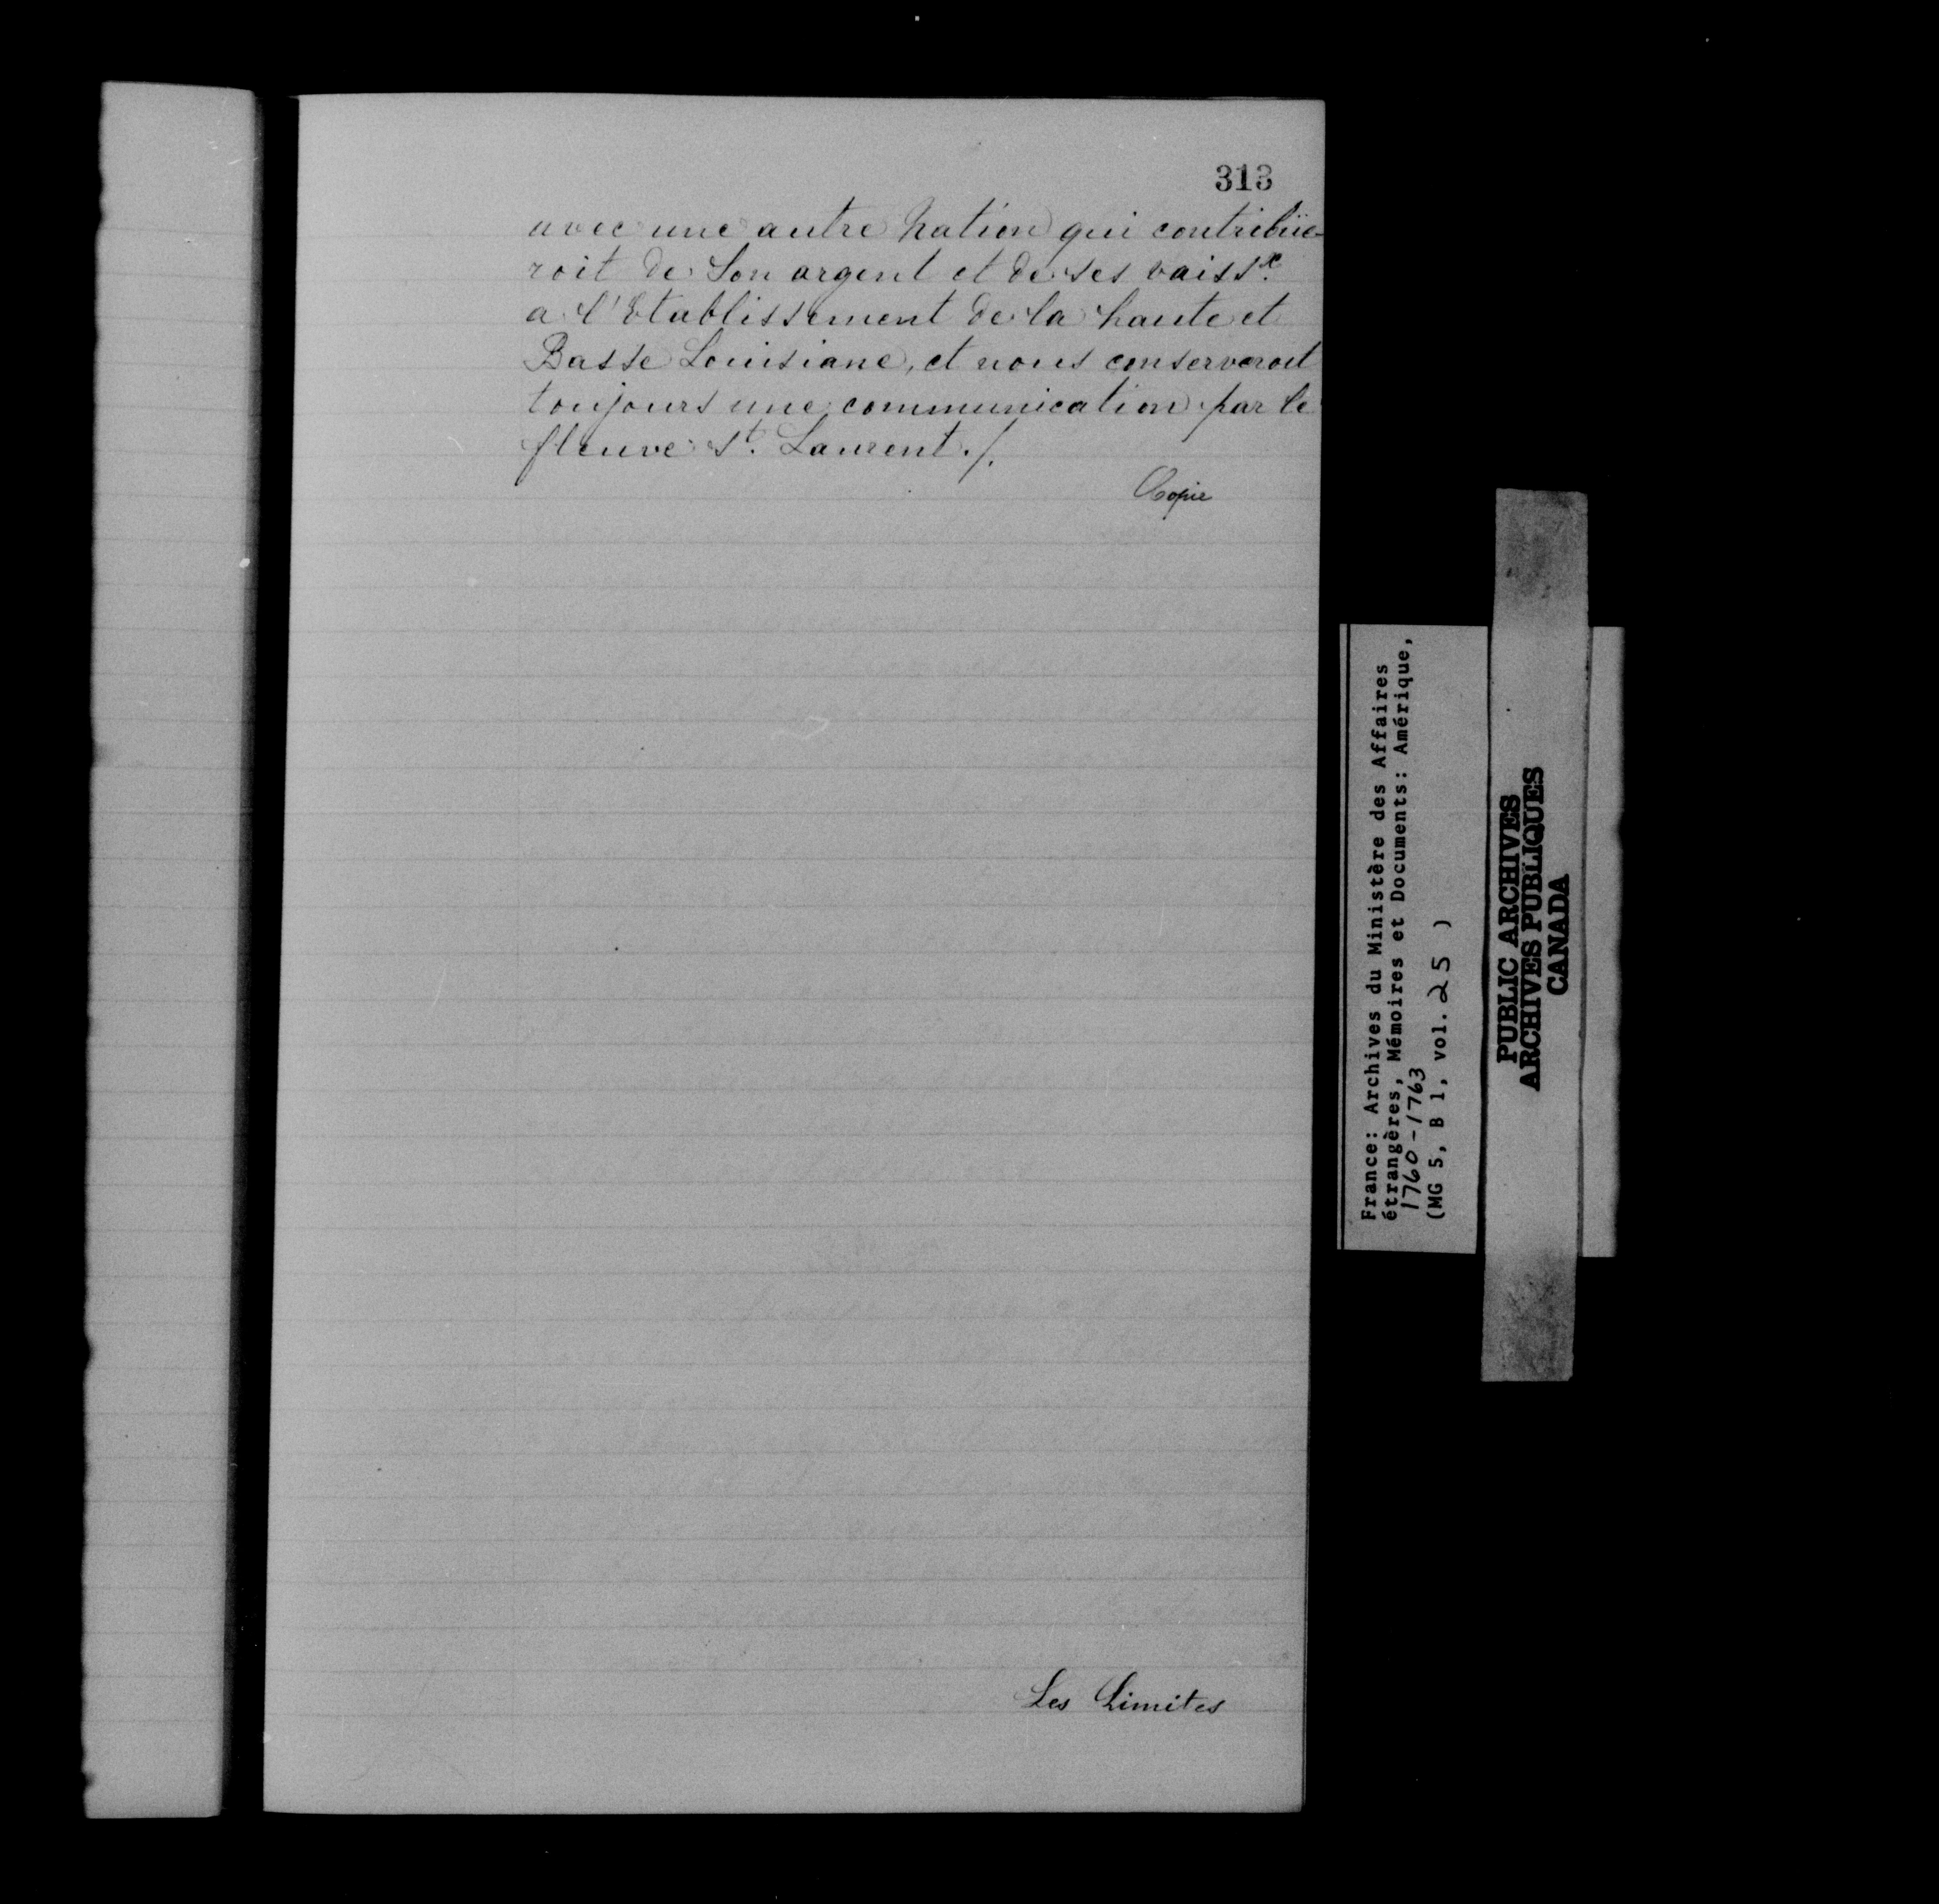 313
avec une autre Nation qui contribüe-
roit de Son argent et de ses vaissx.
a l'Etablissement de la haute et
Basse Louisiane, et nous conserveroit
toujours une communication par le
fleuve St. Laurent./.
Copie
Les Limites
France: Archives du Ministère des Affaires
étrangères, Mémoires et Documents: Amérique,
1760-1763
(MG 5, B 1, vol. 25 )
PUBLIC ARCHIVES
ARCHIVES PUBLIQUES
CANADA